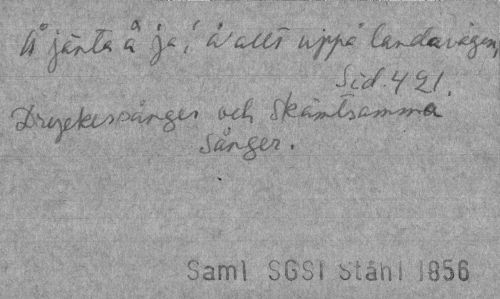 Å jänta å ja, å allt uppå landavägen,
Sid. 421.
Dryckessånger och Skämtsamma
Sånger.
Saml SGS1 Ståhl 1856